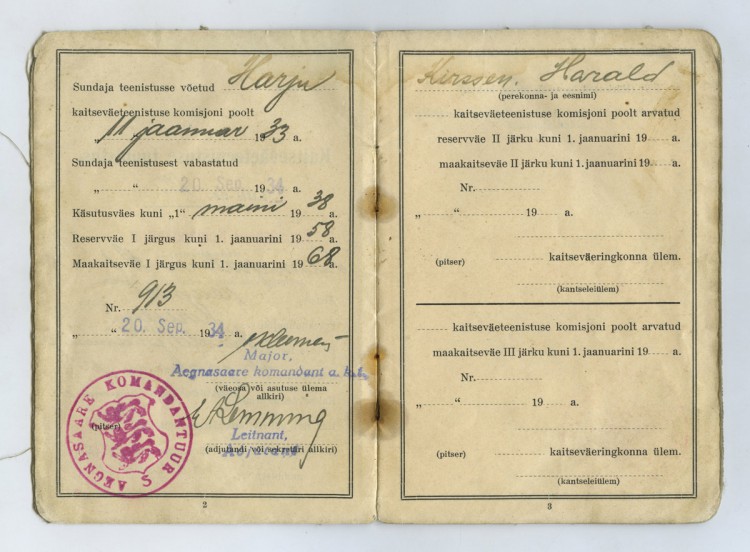 Sundaja teenistusse võetud Harju
kaitseväeteenistuse komisjoni poolt
„11 jaanuar 1933 a.
Sundaja teenistusest vabastatud
„ “ 20 Sep. 1934 a.
Käsutusväes kuni „1“ maini 1938 a.
Reservväe I järgus kuni 1. jaanuarini 1958 a.
Maakaitseväe I järgus kuni 1. jaanuarini 1968 a.
Nr. 913
„ “ 20. Sep. 1934 a.
Major,
Aegnasaare komandant a. k. t.
(väeosa või asutuse ülema
allkiri)
(pitser)
Lemming
Leitnant,
Adjutant
(adjutandi või sekretäri allkiri)
AEGNASAARE KOMANDANTUUR S
2
Kerssen. Harald
(perekonna- ja eesnimi)
kaitseväeteenistuse komisjoni poolt arvatud
reservväe II järku kuni 1. jaanuarini 19 a.
maakaitseväe II järku kuni 1. jaanuarini 19 a.
Nr.
„ “ 19 a.
(pitser) kaitseväeringkonna ülem.
(kantseleiülem)
kaitseväeteenistuse komisjoni poolt arvatud
maakaitseväe III järku kuni 1. jaanuarini 19 a.
Nr.
„ “ 19 a.
(pitser) kaitseväeringkonna ülem.
(kantseleiülem)
3